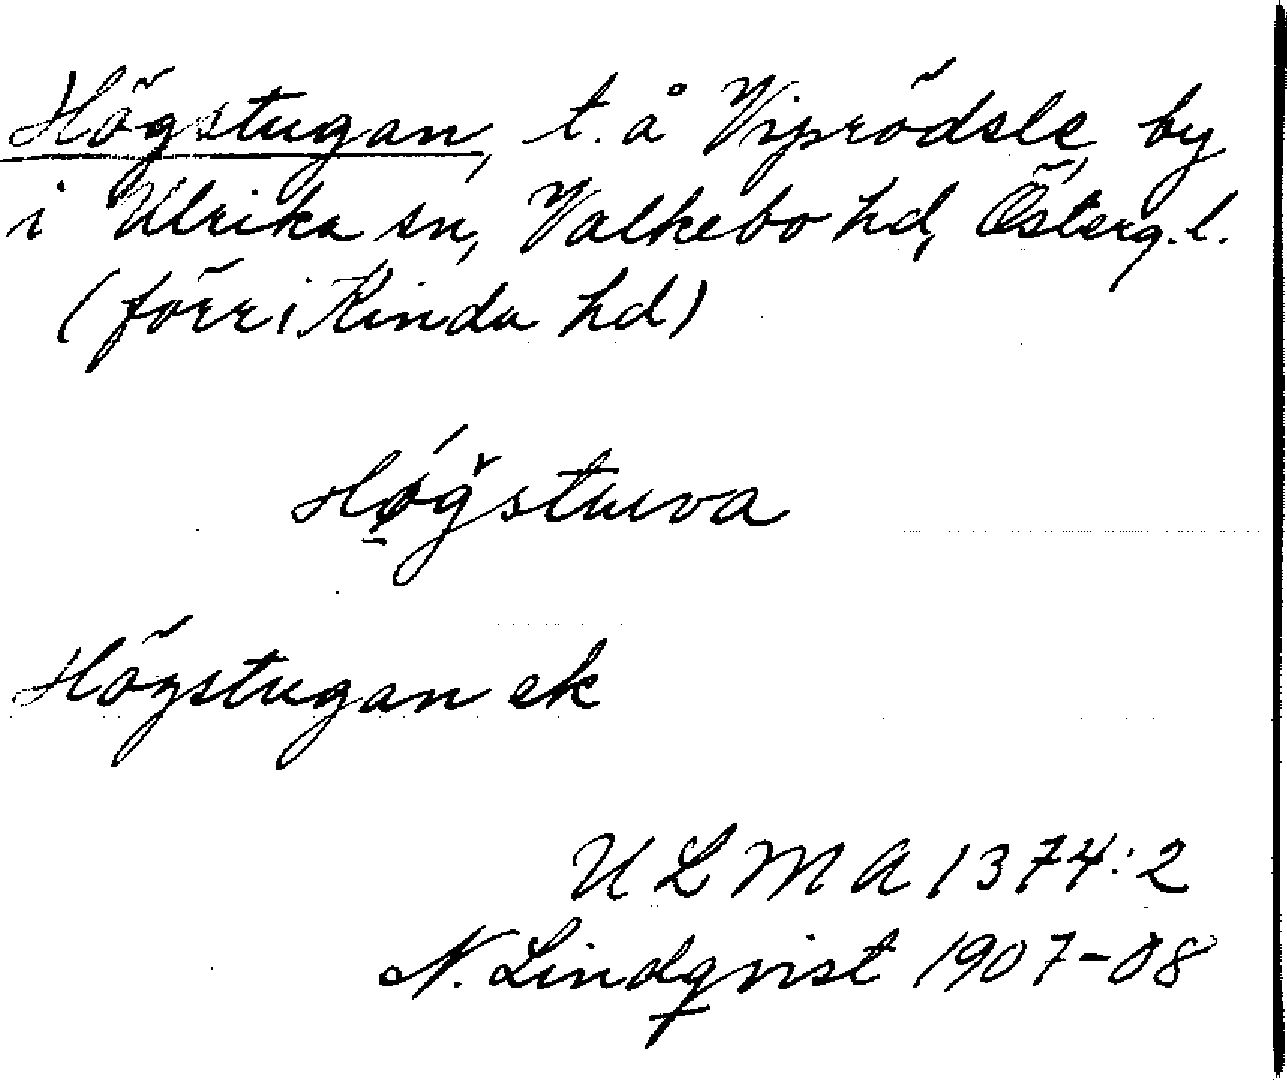 Högstugan, t. å Viprödsle by
i Ulrika sn, Valkebo hd, Österg. l.
(förr i Kinda hd)
Hǿ̱ğstuva
Högstugan ek
ULMA 1374:2
N. Lindqvist 1907-08